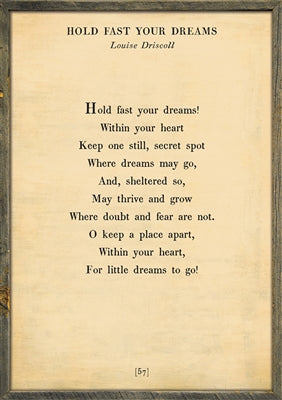 HOLD FAST YOUR DREAMS
Louise Driscoll
Hold fast your dreams!
Within your heart
Keep one still, secret spot
Where dreams may go,
And, sheltered so,
May thrive and grow
Where doubt and fear are not.
O keep a place apart,
Within your heart,
For little dreams to go!
[57]